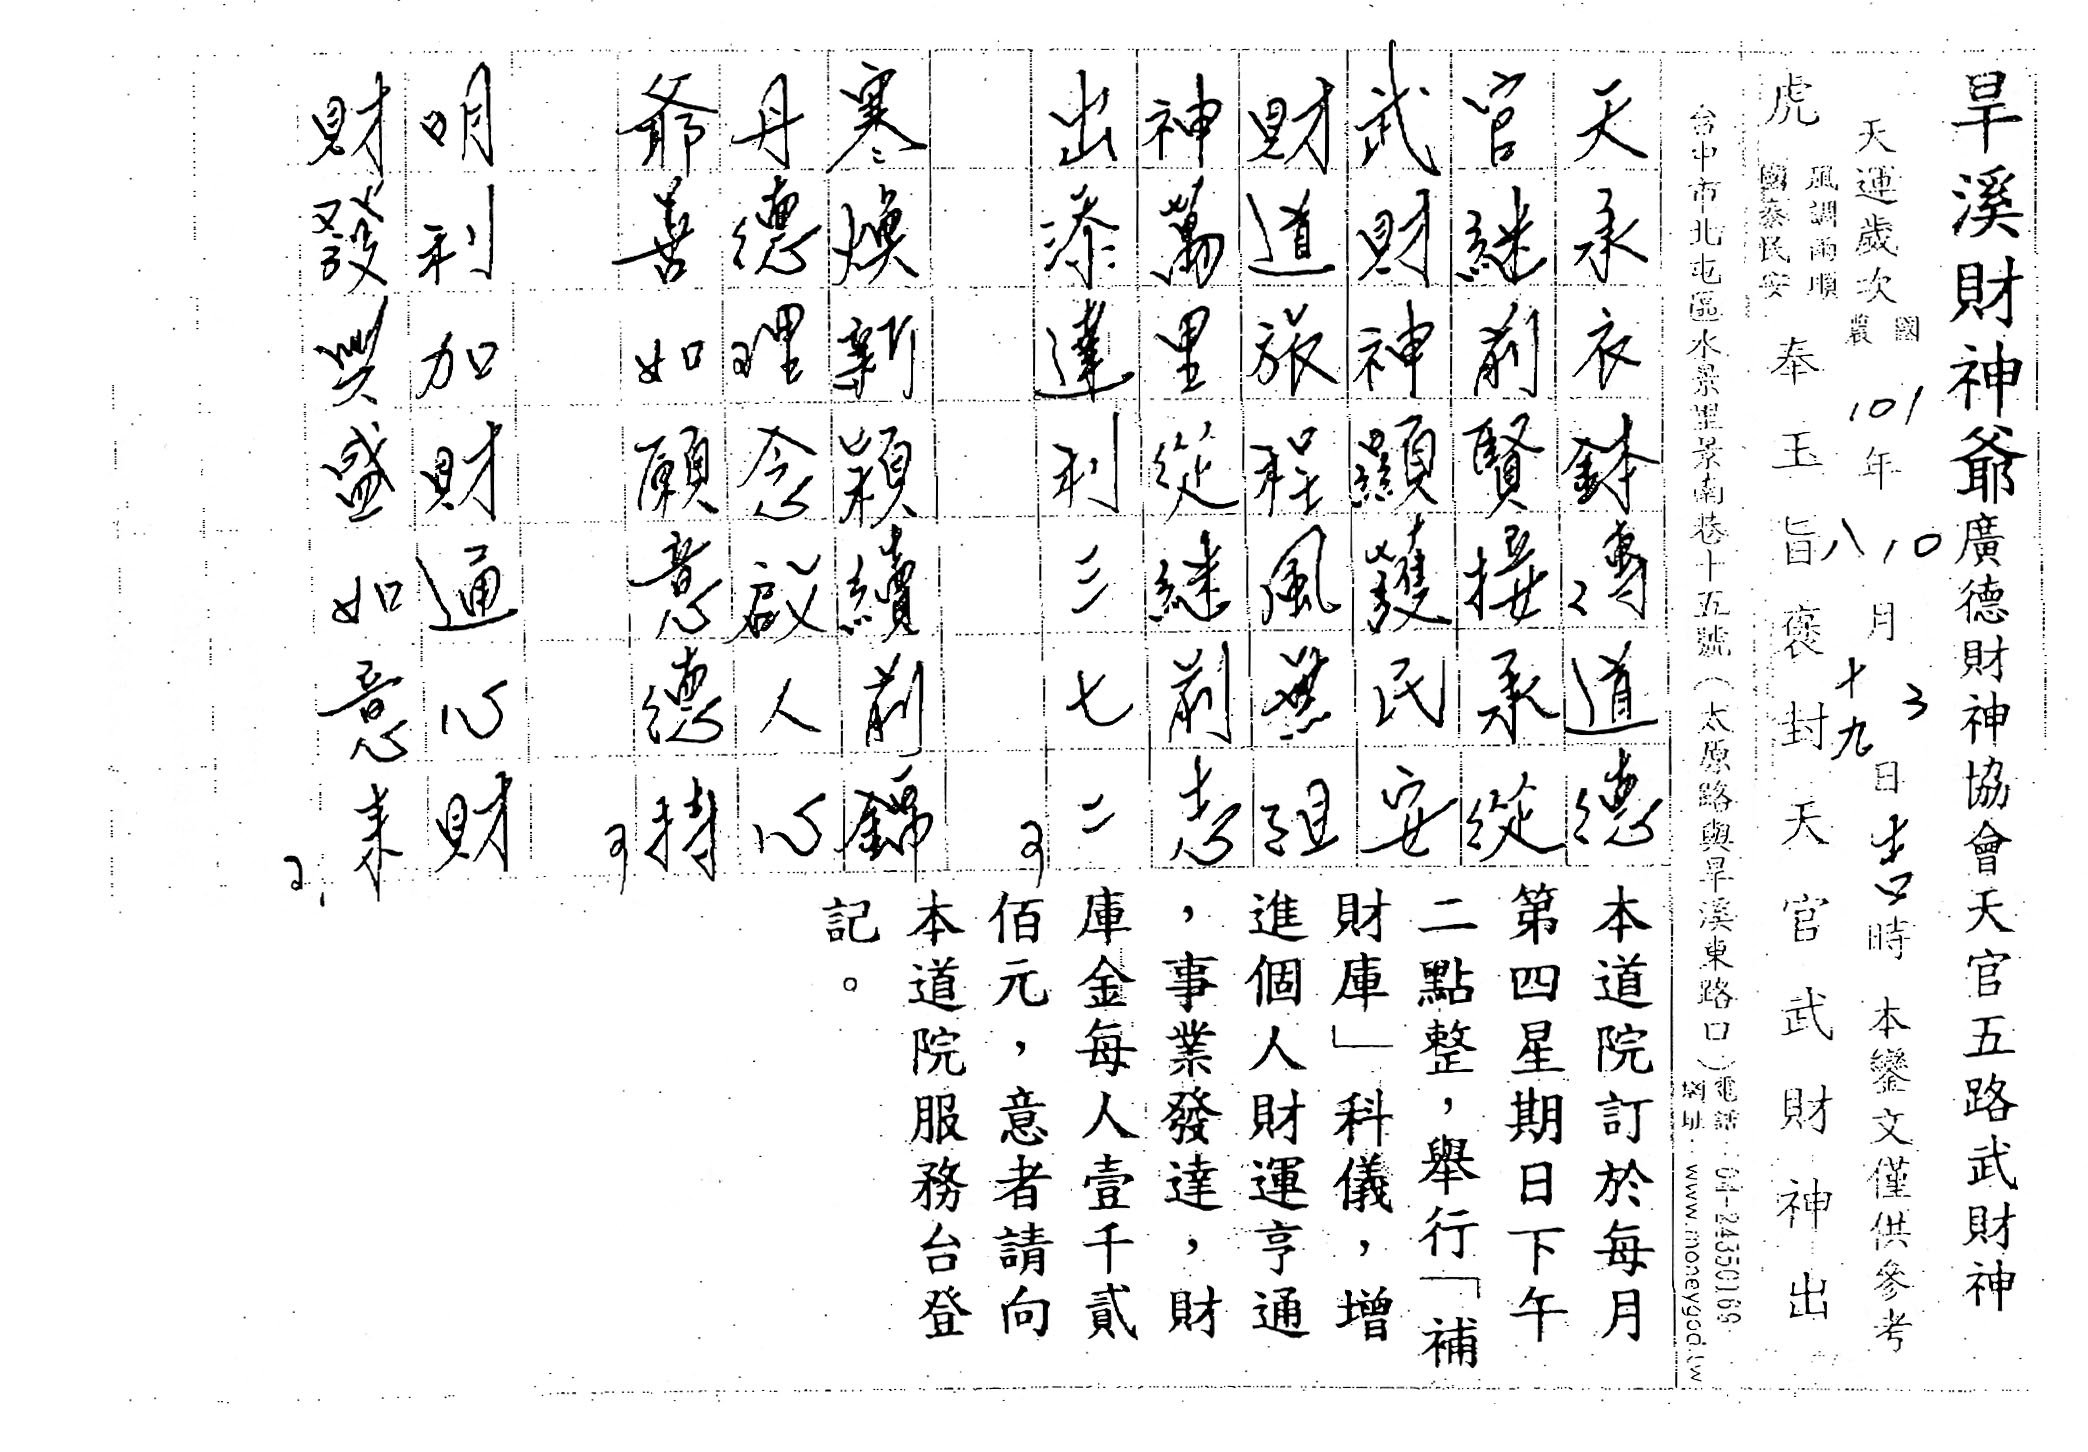 旱溪財神爺廣德財神協會天官五路武財神
天運歲次 國 101年10月3日 農 八 十九 吉時 本鑾文僅供參考
虎 風調雨順 國泰民安 奉玉旨褒封天官武財神出
台中市北屯區水景里景南巷十五號（太原路與旱溪東路口）電話：04-24350169
網址：www.moneygod.tw
天承衣鉢傳道德
官継前賢接承從
武財神顯護民安
財道旅程風無阻
神萬里從継前志
出添達利三七二
寒煥新穎續前錦
丹德理念啟人心
爺善如願意德持
明利加財通心財
財發興盛如意來
本道院訂於每月
第四星期日下午
二點整，舉行「補
財庫」科儀，增
進個人財運亨通
，事業發達，財
庫金每人壹千貳
佰元，意者請向
本道院服務台登
記。